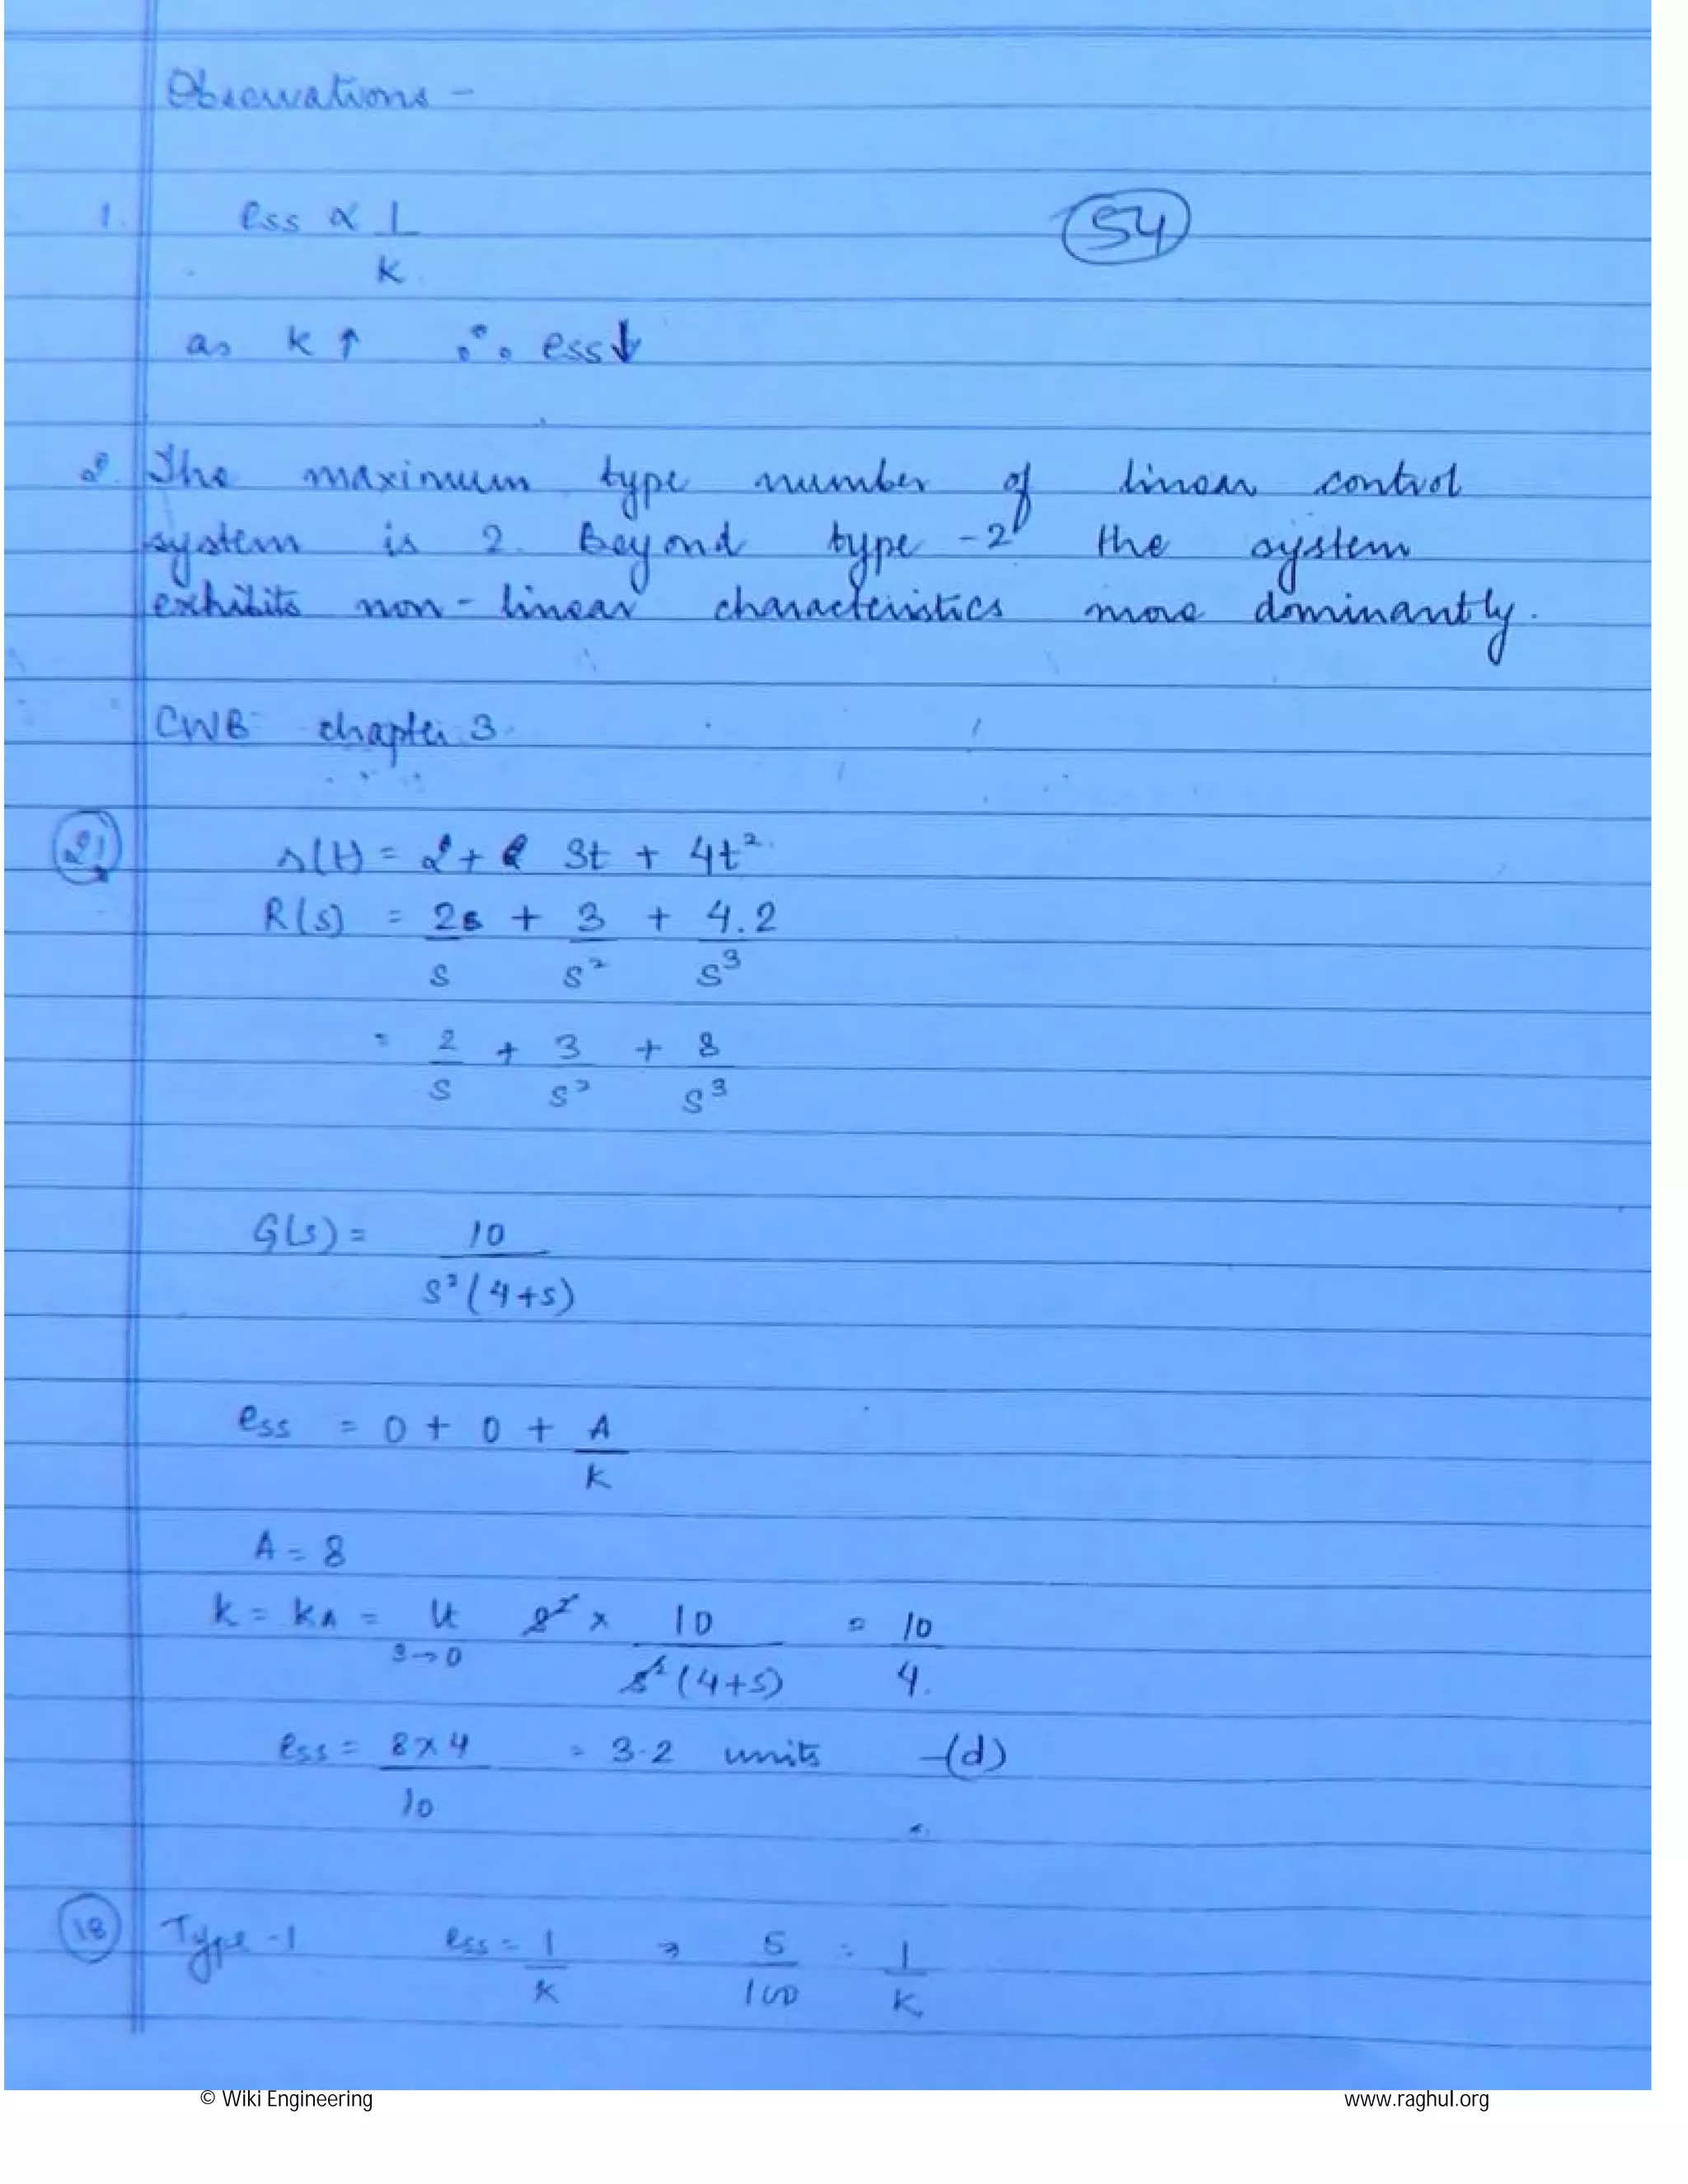 Observations -
1. ess ∝ 1/K
54
as K ↑ ∴ ess ↓
2. The maximum type number of linear control
system is 2. Beyond type -2 the system
exhibits non-linear characteristics more dominantly.
CWB chapter 3.
21 r(t) = 2 + 3t + 4t²
R(s) = 2/s + 3/s² + 4.2/s³
= 2/s + 3/s² + 8/s³
G(s) = 10/s²(4+s)
ess = 0 + 0 + A/K
A = 8
K = KA = Lt s→0 s² × 10/s²(4+s) = 10/4.
ess = 8×4/10 = 3.2 units -(d)
18 Type -1 ess = 1/K ⇒ 5/100 = 1/K
© Wiki Engineering www.raghul.org